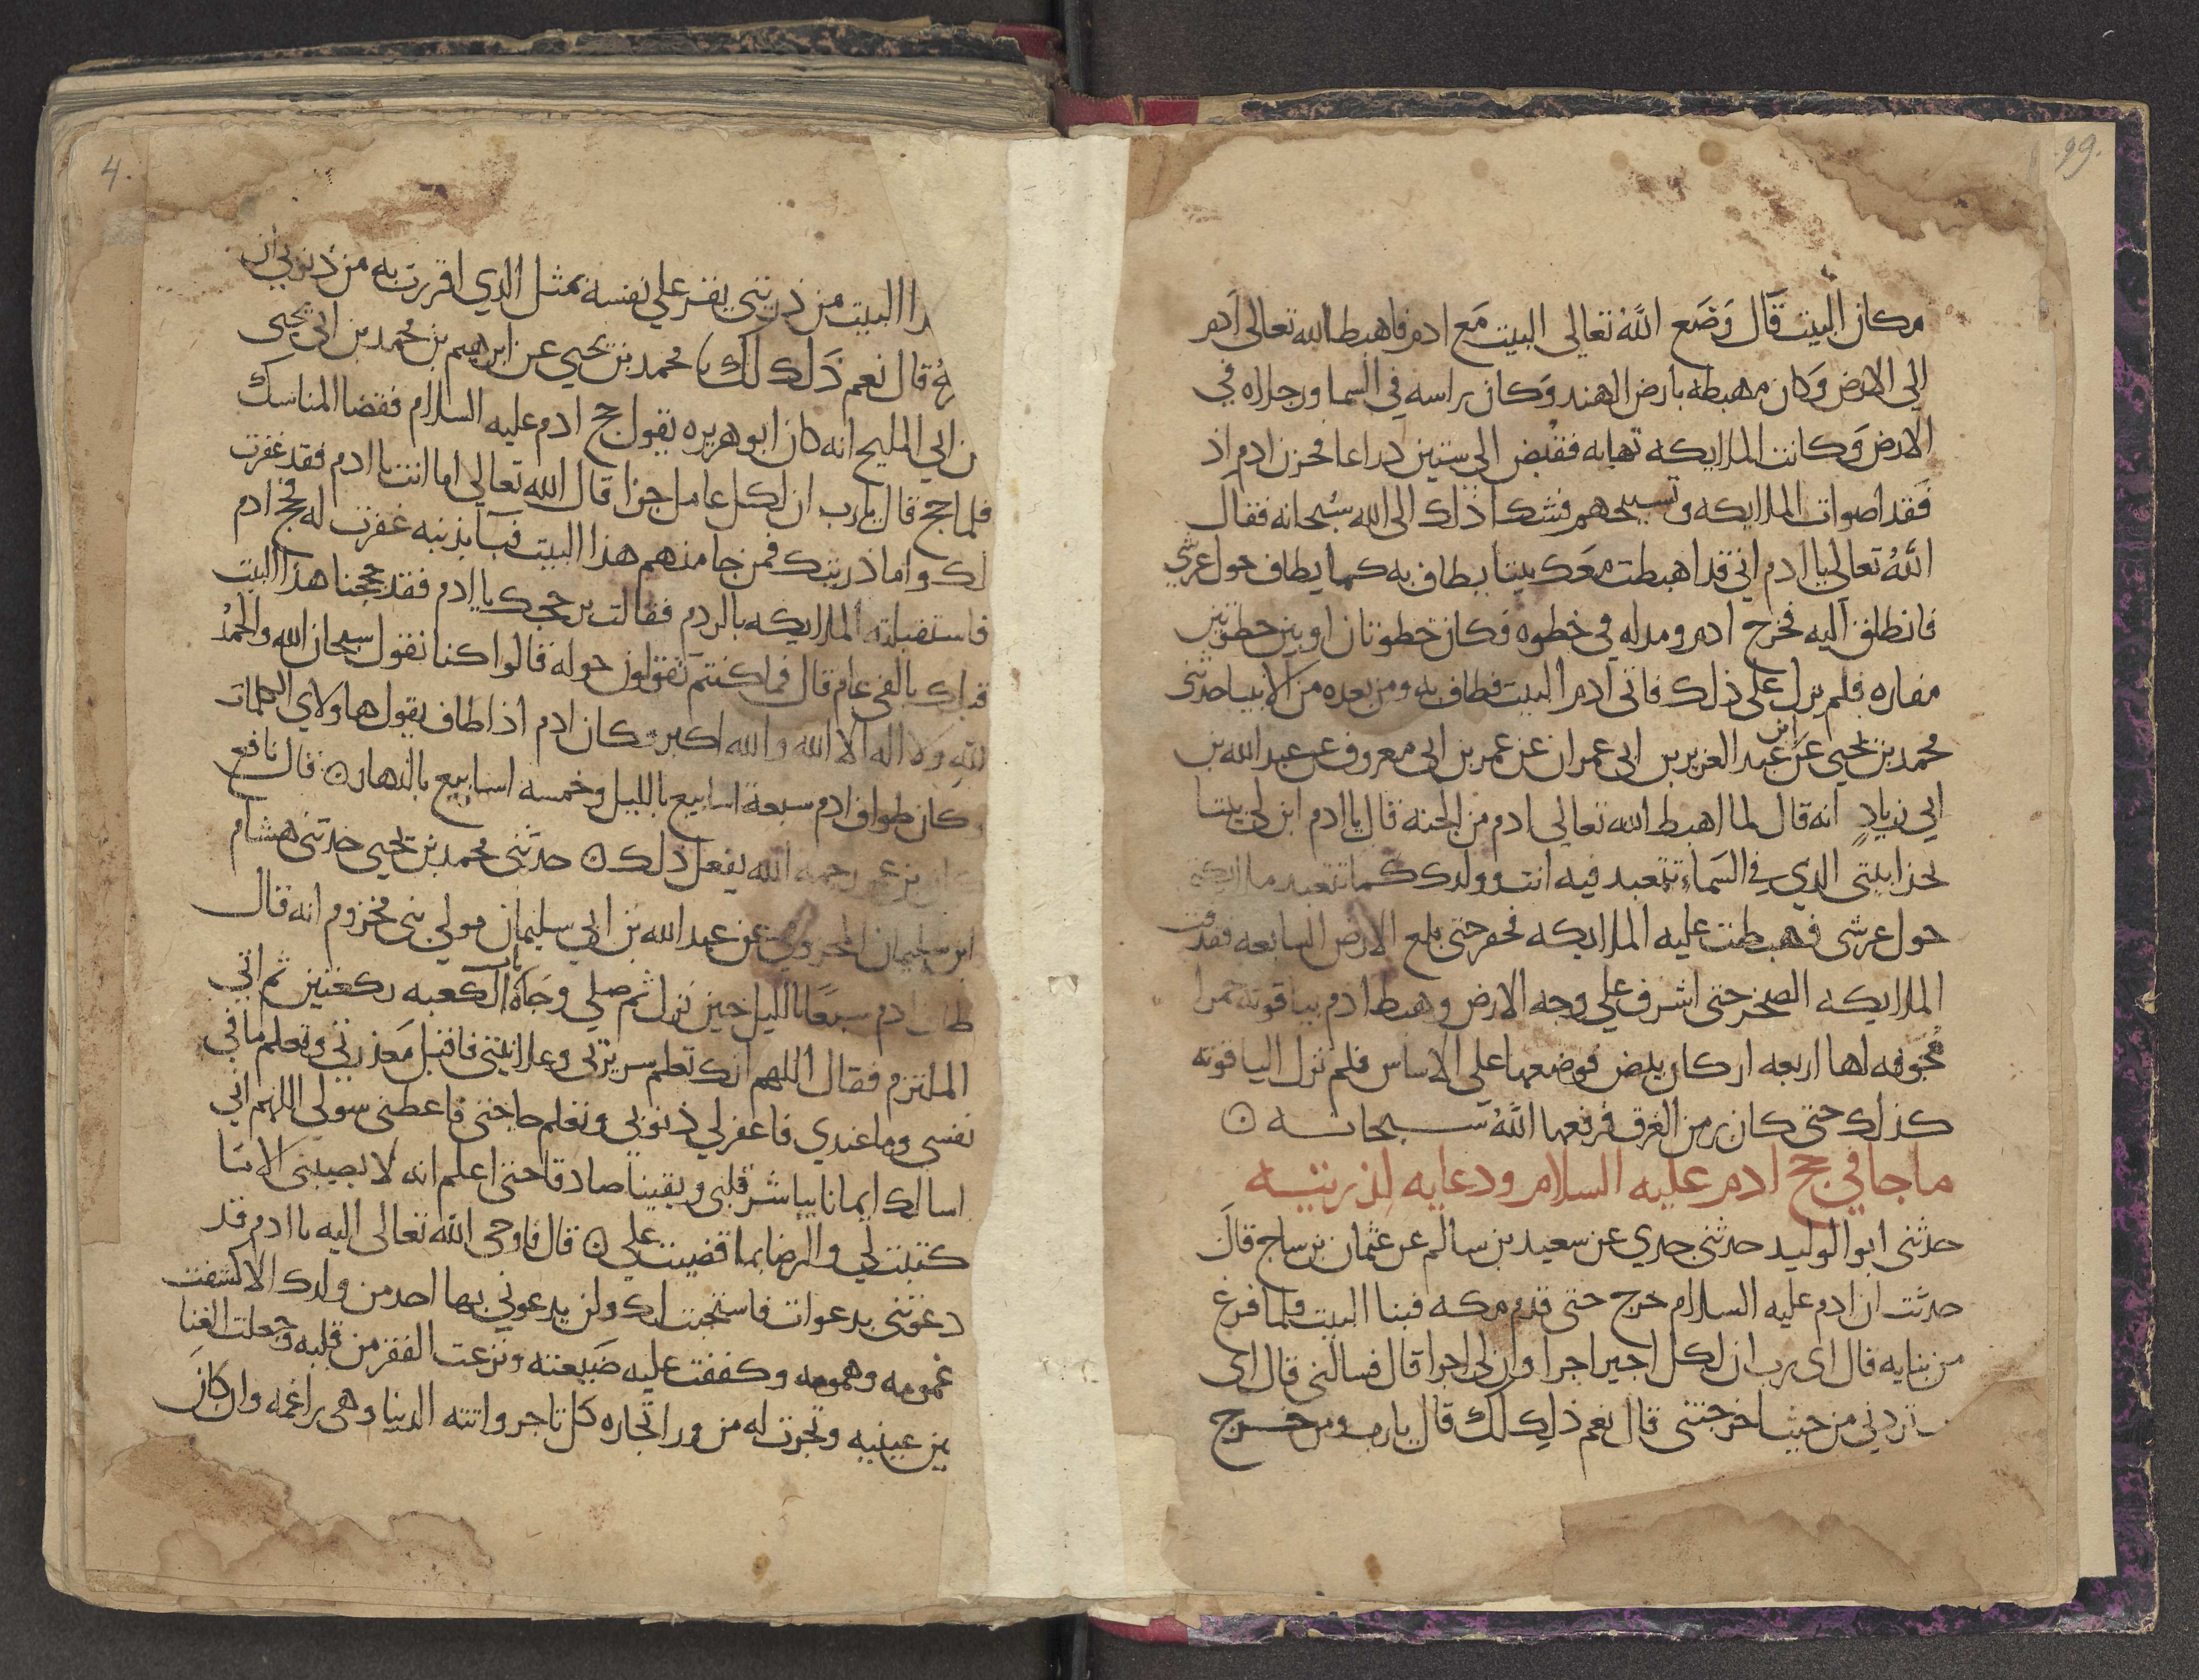 99.
مكان البيت قال وَضَع اللهُ تعالى البيت مَع ادم فاهبط الله تعالى ادم
الي الارض وَكان مهبطه بارض الهند وَكان راسه في السما ورجلاه في
الارض وَكانت الملايكه تهابه فقبض الى ستين ذراعا فحزن ادم اذ
فَقد اصوات الملايكه وتسبيحهم فشكا ذلك الى الله سُبحانه فقال
اللهُ تعالى يا ادم اني قد اهبطت معَك بيتا يطاف به كما يطاف حول عرشي
فانطلق اليه فخرج ادم ومد له في خطوه فكان خطوتان او بين خطوتين
مفازه فلم يزل علي ذلك فاتى ادم البيت فطاف به ومن بعده من الانبيا حدثنى
محمد بن يحيي عَن عبد العزيز بن ابي عمران عن عمر بن ابي معروف عن عبد الله بن
ابي زيادٍ انه قال لما اهبط الله تعالى ادم من الجنه قال يا ادم ابن لي بيتا
بحذا بيتي الذي في السَماء تتعبد فيه انت وولدك كما تتعبد ملايكتي
حول عرشي فهبطت عليه الملايكه فحفر حتى بلغ الارض السابعه فقذفت
الملايكه الصخر حتى اشرف علي وجه الارض وهبط ادم بياقوته حمرا
مُجوفه لها اربعه اركان بيض فوضعها على الاساس فلم تزل الياقوته
كذلك حتى كان زمن الغرق فرفعها اللهُ سبحانه ⊙
ما جا في حج ادم عليه السلام ودعايه لذريته
حدثنى ابو الوليد حدثنى جدي عن سعيد بن سالم عن عثمان بن ساج قالَ
حدثت ان ادم عليه السلام خرج حتى قدم مكه فبنا البيت فلما فرغ
من بنايه قال اى رب ان لكل اجير اجرا وان لي اجرا قال فسالني قال اى
تردني من حيث اخرجتنى قال نعم ذلِك لك قال يا رب ومن خرج
4.
البيت من ذريتي يقر علي نفسه بمثل الذي اقررت به من ذنوبي ان
قال نعم ذَلك لك محمد بن يحيي عن ابرهيم بن محمد بن ابي يحيى
ن ابي المليح انه كان ابو هريره يقول حج ادم عليه السلام فقضا المناسك
فلما حج قال يا رب ان لكل عامل جزا قال الله تعالي اما انت يا ادم فقد غفرت
لك واما ذريتك فمن جا منهم هذا البيت فبآ بذنبه غفرت له فحج ادم
فاستقبلته الملايكه بالردم فقالت بر حجك يا ادم فقد حججنا هذا البيت
قبلك بالفي عام قال فما كنتم تقولون حوله قالوا كنا نقول سبحان الله والحمدُ
للهِ ولا اله الا الله والله اكبر فكان ادم اذا طاف يقول هاولاي الكلمات
وكان طواف ادم سبعة اسابيع بالليل وخمسه اسابيع بالنهار ⊙ قال نافع
كان بن عمر رحمه الله يفعل ذلك ⊙ حدثنى محمد بن يحيي حدثنى هشام
ابن سليمان المخزومي عن عبد الله بن ابي سليمان مولي بني مخزوم انه قال
طاف ادم سبعًا بالليل حين نزل ثم صلي وجاه باب الكعبه ركعتين ثم اتي
الملتزم فقال اللهم انك تعلم سريرتي وعلانيتي فاقبل مَعذرتي وتعلم ما في
نفسي وما عندي فاغفر لي ذنوبي وتعلم حاجتى فاعطنى سولى اللهم اني
اسالك ايمانا يباشر قلبي ويقيناً صادقا حتى اعلم انه لا يصيبني الا مَا
كتبت لي والرضا بما قضيت علي ⊙ قال فاوحى الله تعالى اليه يا ادم قد
دعوتني بدعوات فاستجبت لك ولن يدعوني بها احد من ولدك الا كشفت
غمومه وهمومه وكففت عليه ضَيعته ونزعت الفقر من قلبه وجعلت الغنا
بين عينيه وتجرت له من ورا تجاره كل تاجر واتته الدنيا وهى راغمه وان كانَ